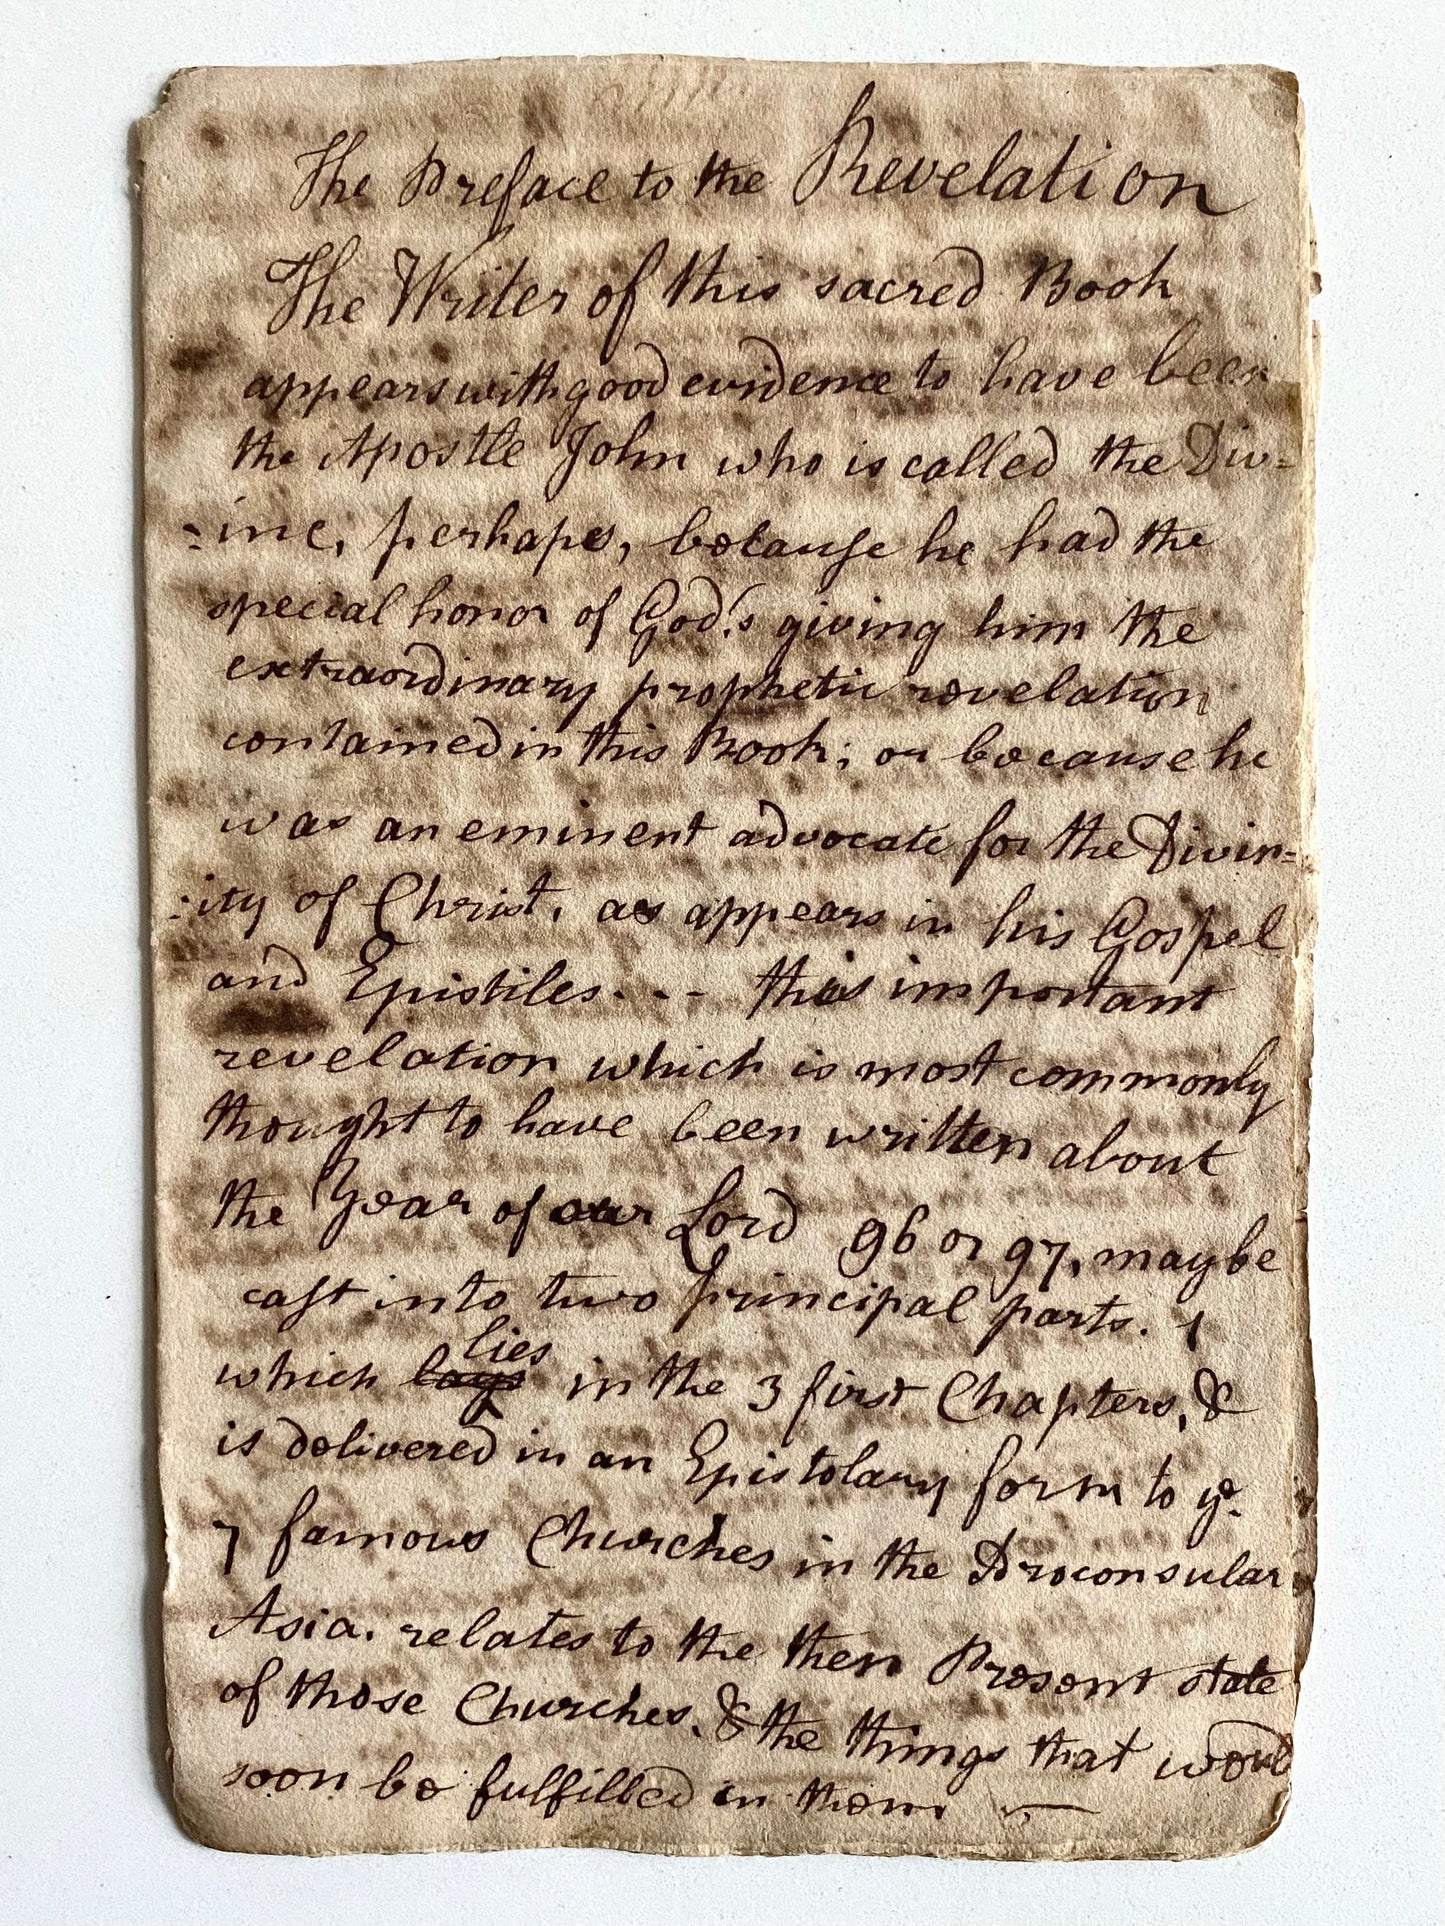 The Preface to the Revelation
The Writer of this sacred Book
appears with good evidence to have been
the Apostle John who is called the Div=
=ine, perhaps, because he had the
special honor of God's giving him the
extraordinary prophetic revelation
contained in this Book; or because he
was an eminent advocate for the Divin=
=ity of Christ, as appears in his Gospel
and Epistiles - - - this important
revelation which is most commonly
thought to have been written about
the Year of our Lord 96 or 97, may be
cast into two principal parts. 1
lies
which lays in the 3 first Chapters, &
is delivered in an Epistolary form to ye.
7 famous Churches in the Proconsular
Asia. relates to the then Present state
of those Churches. & the things that would
soon be fulfilled in them